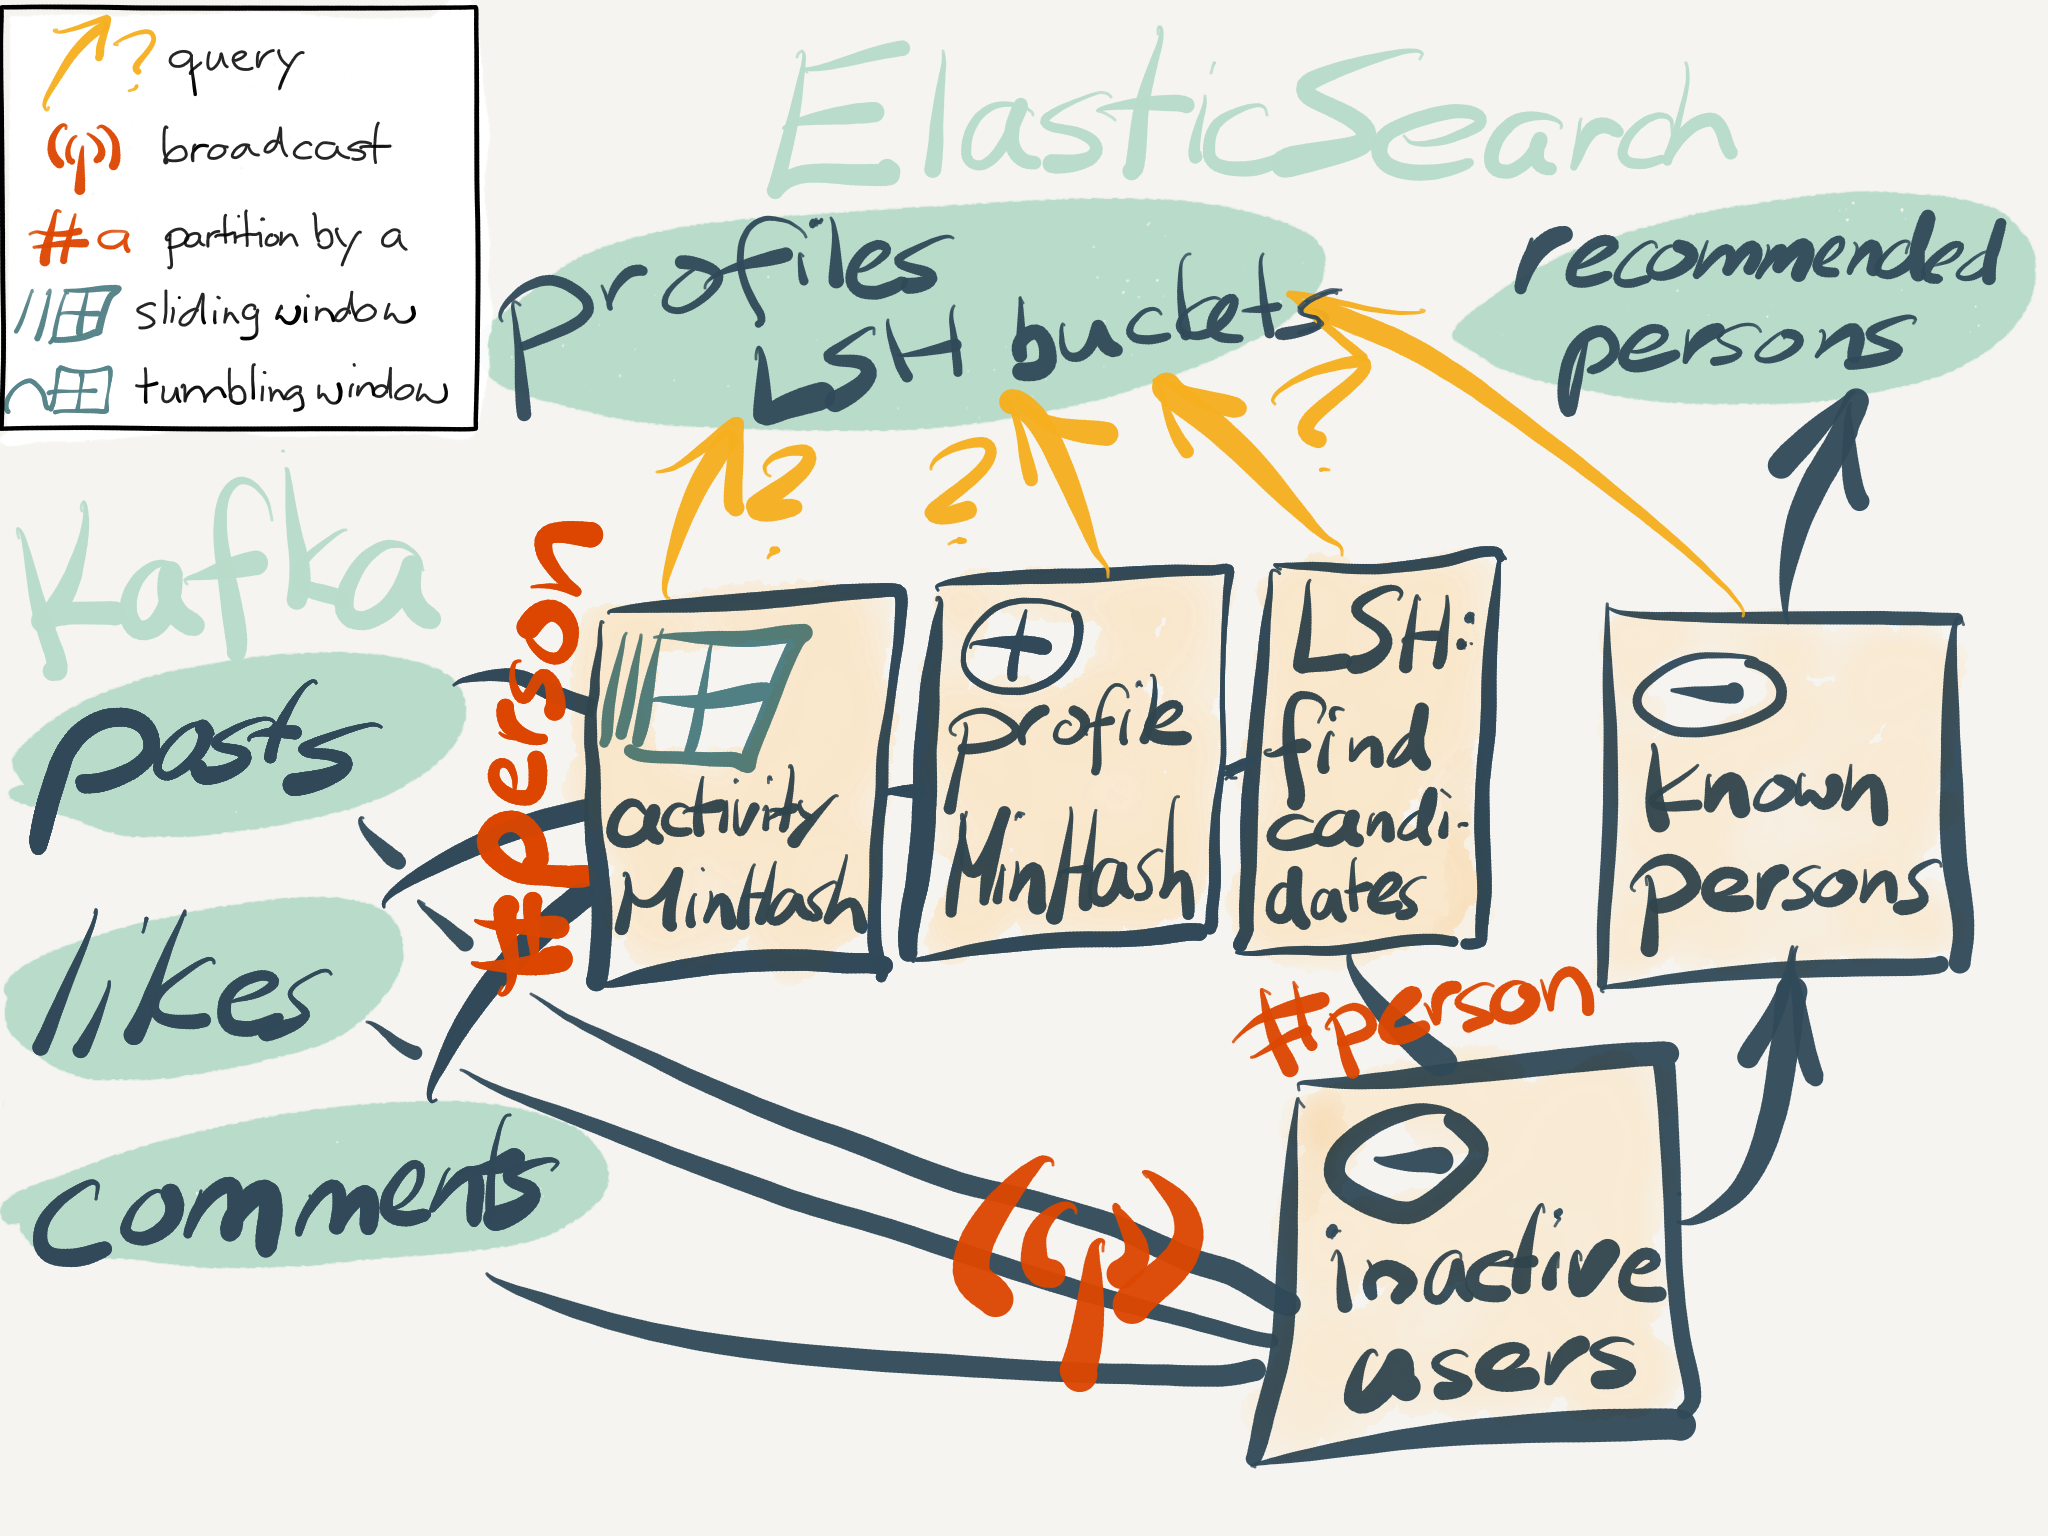 ? query
broadcast
#a partition by a
sliding window
tumbling window
ElasticSearch
profiles
LSH buckets
recommended
persons
?
?
?
Kafka
posts
likes
comments
#person
activity
MinHash
+
profile
MinHash
LSH:
find
candi-
dates
-
known
persons
#person
-
inactive
users